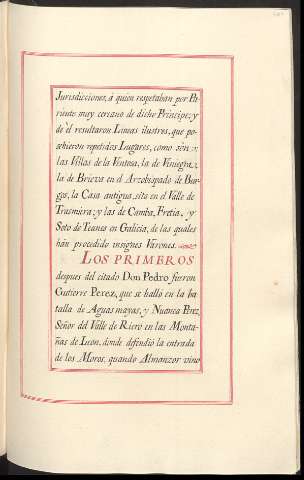 Jurisdicciones, á quien respetaban por Pa-
riente muy cercano de dicho Principe; y
de èl resultaron Lineas ilustres, que po-
sehieron repetidos Lugares, como son:
las Villas de la Ventosa, la de Viniegra,
la de Brieva en el Arzobispado de Bur-
gos, la Casa antigua, sita en el Valle de
Trasmiera; y las de Camba, Fretia, y
Soto de Teanes en Galicia, de las quales
hàn procedido insignes Varones.
LOS PRIMEROS
despues del citado Don Pedro fueron
Gutierre Perez, que se hallò en la ba-
talla de Aguas mayas, y Nuenca Perez,
Señor del Valle de Riero en las Monta-
ñas de Leon, donde defendiò la entrada
de los Moros, quando Almanzor vino